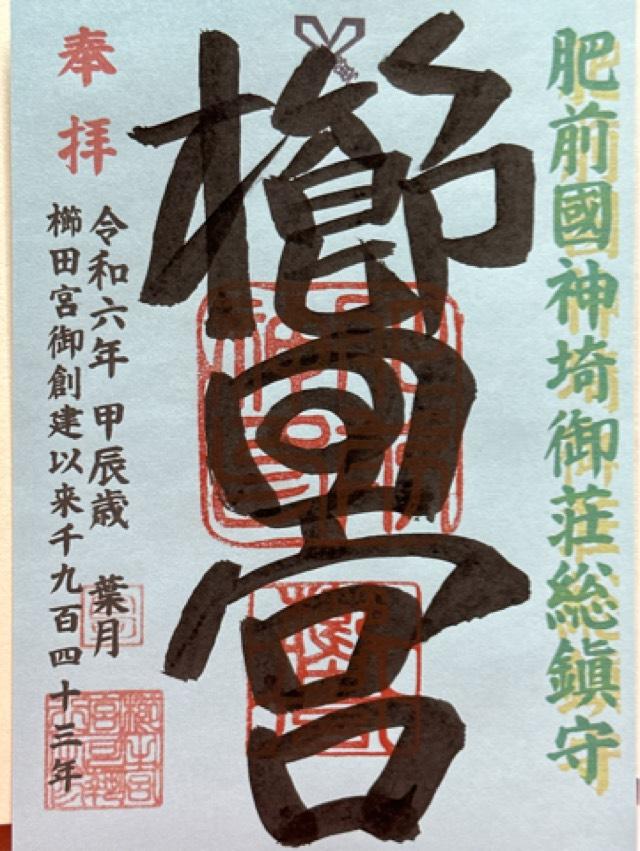 肥前國神埼御荘総鎮守
櫛田宮
奉拝
令和六年 甲辰歳 葉月
櫛田宮御創建以来千九百四十三年